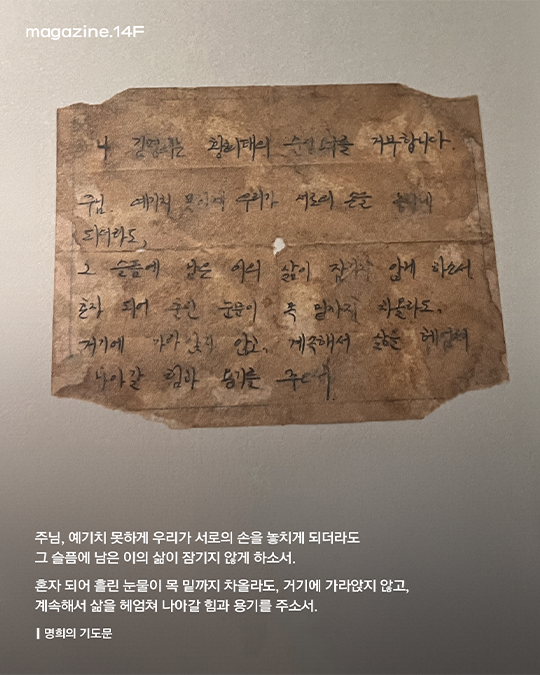 magazine.14F
나 김명희는 황희태의 순정 보구를 거부합니다.
주님, 예기치 못하게 우리가 서로의 손을 놓치게
되더라도,
그 슬픔에 남은 이의 삶이 잠기지 않게 하소서
혼자 되어 흘린 눈물이 목 밑까지 차올라도,
거기에 가라앉지 않고, 계속해서 삶을 헤엄쳐
나아갈 힘과 용기를 주소서
주님, 예기치 못하게 우리가 서로의 손을 놓치게 되더라도
그 슬픔에 남은 이의 삶이 잠기지 않게 하소서.
혼자 되어 흘린 눈물이 목 밑까지 차올라도, 거기에 가라앉지 않고,
계속해서 삶을 헤엄쳐 나아갈 힘과 용기를 주소서.
명희의 기도문